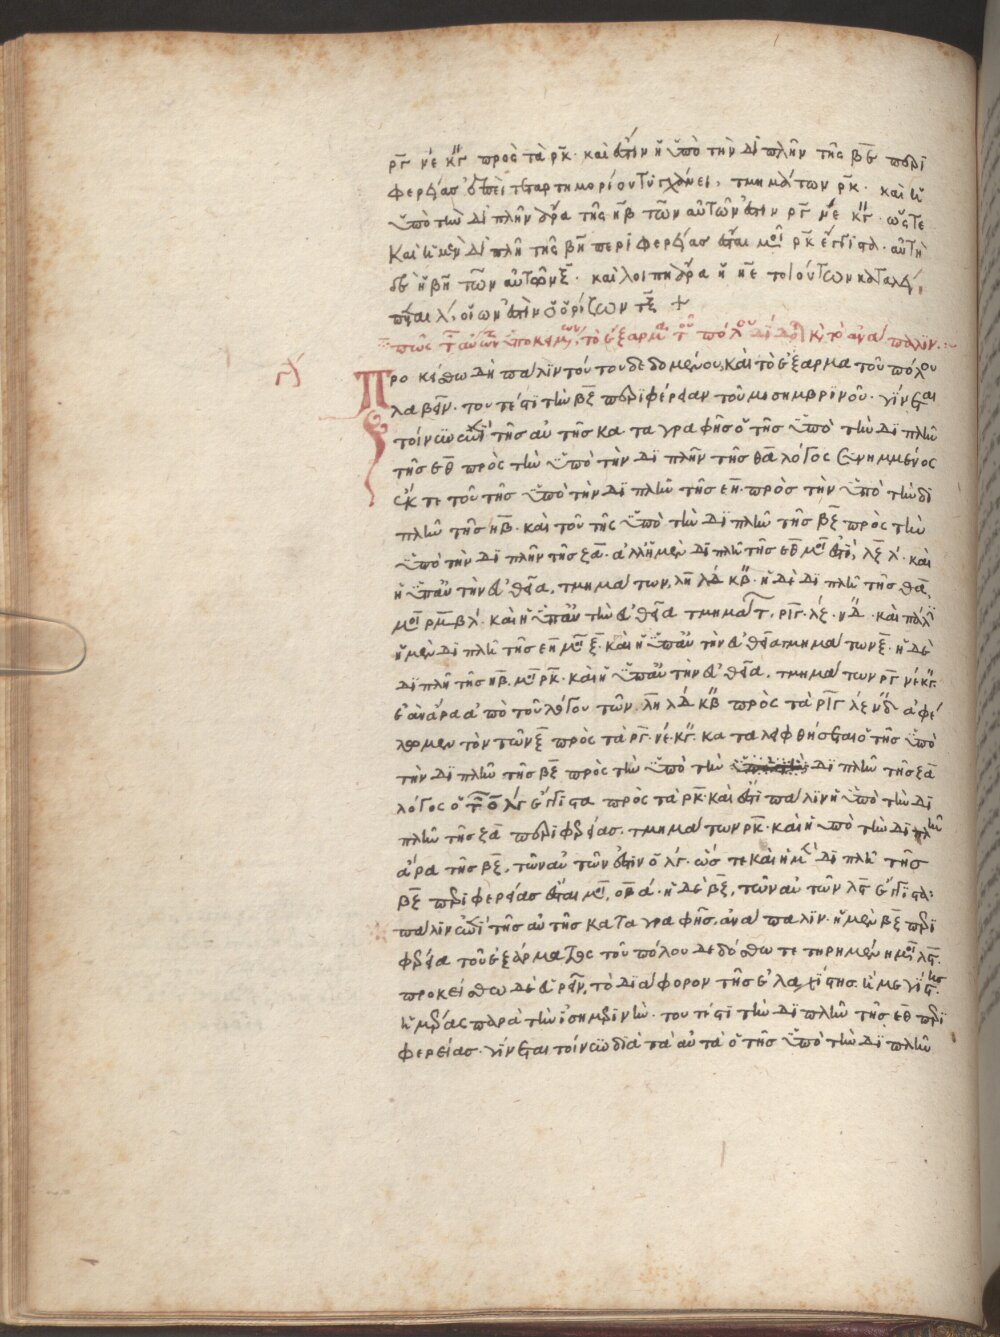 ργ νε κγ πρὸς τὰ ρκ· καὶ ἔστιν ἡ ὑπὸ τὴν διπλῆν τῆς βε περι
φερείας ἐπεὶ τεταρτημορίου τυγχάνει, τμημάτων ρκ· καὶ ἡ
ὑπὸ τὴν διπλῆν ἄρα τῆς ηβ τῶν αὐτῶν ἐστιν ργ νε κγ· ὥστε
καὶ ἡ μὲν διπλῆ τῆς βη περιφερείας ἔσται μοι ρκ ἔγγιστα· αὐτὴ
δὲ ἡ βη τῶν αὐτῶν ξ· καὶ λοιπὴ ἄρα ἡ ηε τοιούτων καταλεί
πεται λ, οἵων ἐστὶν ὁ ὁρίζων τξ +
πῶς τῶν αὐτῶν ὑποκειμένων, τὸ ἔξαρμα τοῦ πόλου δίδοται καὶ τὸ ἀνάπαλιν :~
γ
Προκείσθω δὴ πάλιν τούτου δεδομένου, καὶ τὸ ἔξαρμα τοῦ πόλου
λαβεῖν· τουτέστι τὴν βζ περιφέρειαν τοῦ μεσημβρινοῦ· γίνεται
τοίνυν ἐπὶ τῆς αὐτῆς καταγραφῆς ὁ τῆς ὑπὸ τὴν διπλῆν
τῆς εθ πρὸς τὴν ὑπὸ τὴν διπλῆν τῆς θα λόγος συνημμένος
ἔκ τε τοῦ τῆς ὑπὸ τὴν διπλῆν τῆς εη πρὸς τὴν ὑπὸ τὴν δι
πλῆν τῆς ηβ· καὶ τοῦ τῆς ὑπὸ τὴν διπλῆν τῆς βζ πρὸς τὴν
ὑπὸ τὴν διπλῆν τῆς ζα· ἀλλ' ἡ μὲν διπλῆ τῆς εθ μοι ἐστι, λζ λ· καὶ
ἡ ὑπ' αὐτὴν εὐθεῖα, τμημάτων, λη λδ κβ· ἡ δὲ διπλῆ τῆς θα,
μοι ρμβ λ· καὶ ἡ ὑπ' αὐτὴν εὐθεῖα τμημάτ, ριγ· λζ· νδ· καὶ πάλιν
ἡ μὲν διπλῆ τῆς εη μοι ξ· καὶ ἡ ὑπ' αὐτὴν εὐθεῖα τμημάτων ξ· ἡ δὲ
διπλῆ τῆς ηβ μοι ρκ· καὶ ἡ ὑπ' αὐτὴν εὐθεῖα, τμημάτων ργ νε κγ·
ἐὰν ἄρα ἀπὸ τοῦ λόγου τῶν λη λδ κβ πρὸς τὰ ριγ λζ νδ ἀφέ
λωμεν τὸν τῶν ξ πρὸς τὰ ργ νε κγ· καταλειφθήσεται ὁ τῆς ὑπὸ
τὴν διπλῆν τῆς βζ πρὸς τὴν ὑπὸ τὴν διπλῆν τῆς ζα
λόγος ὁ τῶν λγ ἔγγιστα πρὸς τὰ ρκ· καὶ ἔστι πάλιν ἡ ὑπὸ τὴν δι
πλῆν τῆς ζα περιφερείας, τμημάτων ρκ· καὶ ἡ ὑπὸ τὴν διπλῆν
ἄρα τῆς βζ, τῶν αὐτῶν ἐστιν λγ· ὥστε καὶ ἡ μὲν διπλῆ τῆς
βζ περιφερείας ἔσται μοι, οβ α· ἡ δὲ βζ, τῶν αὐτῶν λς ἔγγιστα·
πάλιν ἐπὶ τῆς αὐτῆς καταγραφῆς, ἀνάπαλιν· ἡ μὲν βζ περι
φέρεια τοῦ ἐξάρματος τοῦ πόλου δεδόσθω τετηρημένη μοι λς·
προκείσθω δὲ εὑρεῖν, τὸ διάφορον τῆς ἐλαχίστης ἢ μεγίστης
ἡμέρας παρὰ τὴν ἰσημερινήν· τουτέστι τὴν διπλῆν τῆς εθ περι
φερείας· γίνεται τοίνυν διὰ τὰ αὐτὰ ὁ τῆς ὑπὸ τὴν διπλῆν